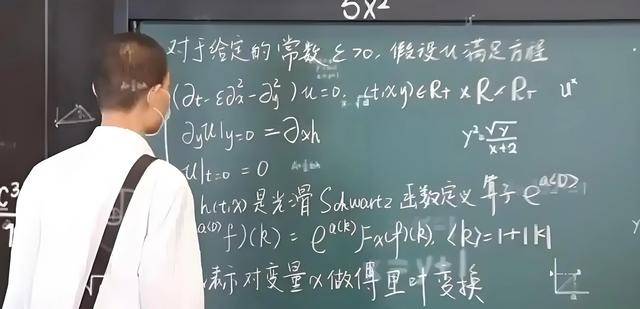 5x²
对于给定的常数 ε>0, 假设 u 满足方程
(∂t-ε∂x²-∂y²)u=0, (t,x,y)∈R+×R×R+
u^x
∂yu|y=0=∂xh
y²=√y/x+2
u|t=0=0
h(t,x)是光滑Schwartz函数定义算子e^a(D)
f)(k)=e^a(k)Fx(f)(k), <k>=1+|k|
表示对变量x做傅里叶变换